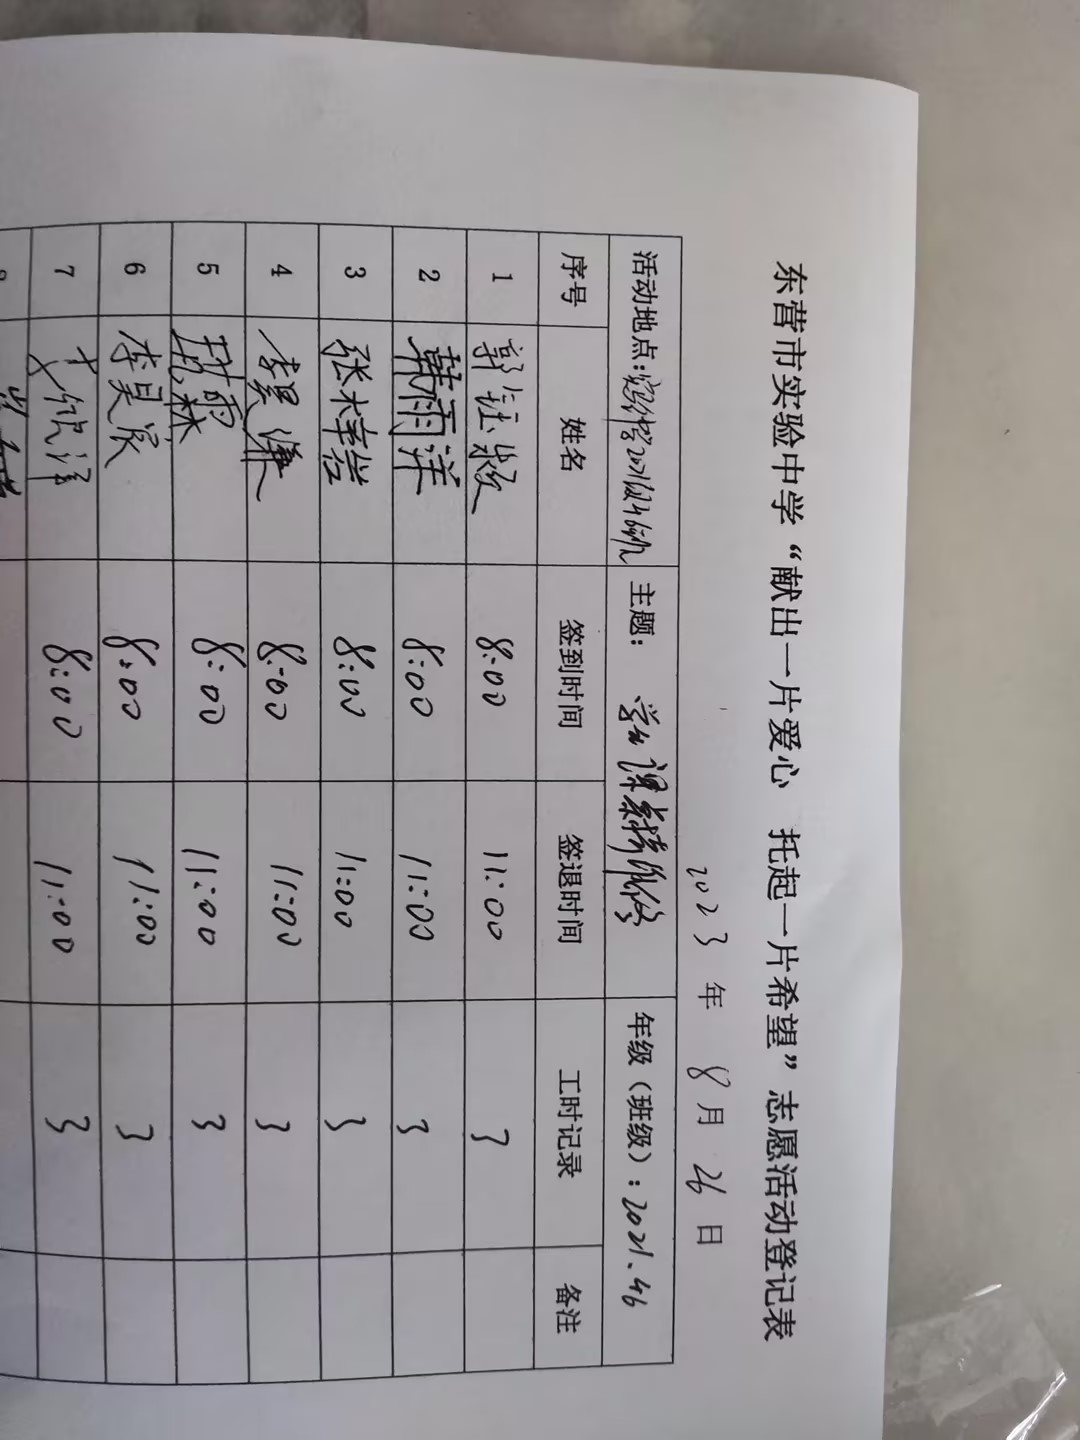 东营市实验中学“献出一片爱心 托起一片希望”志愿活动登记表
2023 年 8 月 26 日
活动地点： 主题： 学生课桌椅维修 年级（班级）：2021.46
序号 姓名 签到时间 签退时间 工时记录 备注
1 郭钰淑 8:00 11:00 3
2 韩雨洋 8:00 11:00 3
3 张梓岩 8:00 11:00 3
4 李昊谦 8:00 11:00 3
5 8:00 11:00 3
6 李昊宸 8:00 11:00 3
7 8:00 11:00 3